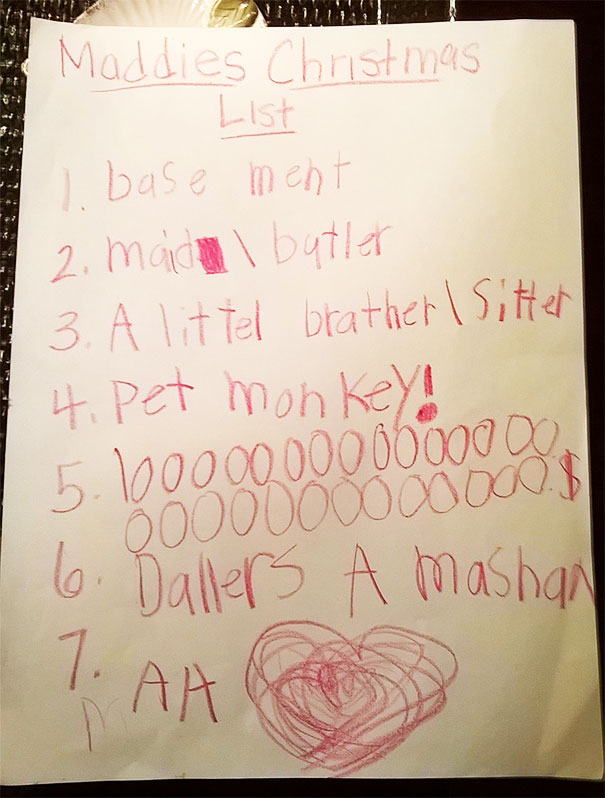 Maddies Christmas
List
1. base ment
2. maid \ butler
3. A littel brather \ Sitter
4. Pet monkey!
5. 10000000000000000
00000000000000.$
6. Dallers A mashan
7. AA